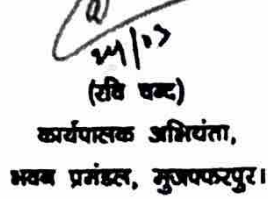 24/03
(रवि चन्द)
कार्यपालक अभियंता,
भवन प्रमंडल, मुजफ्फरपुर।